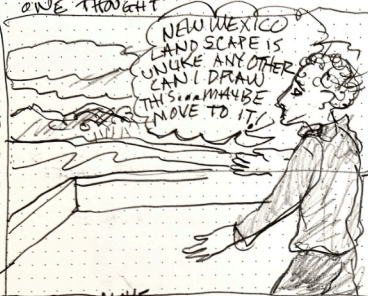 ONE THOUGHT
NEW MEXICO
LANDSCAPE IS
UNLIKE ANY OTHER
CAN I DRAW
THIS...MAYBE
MOVE TO IT!